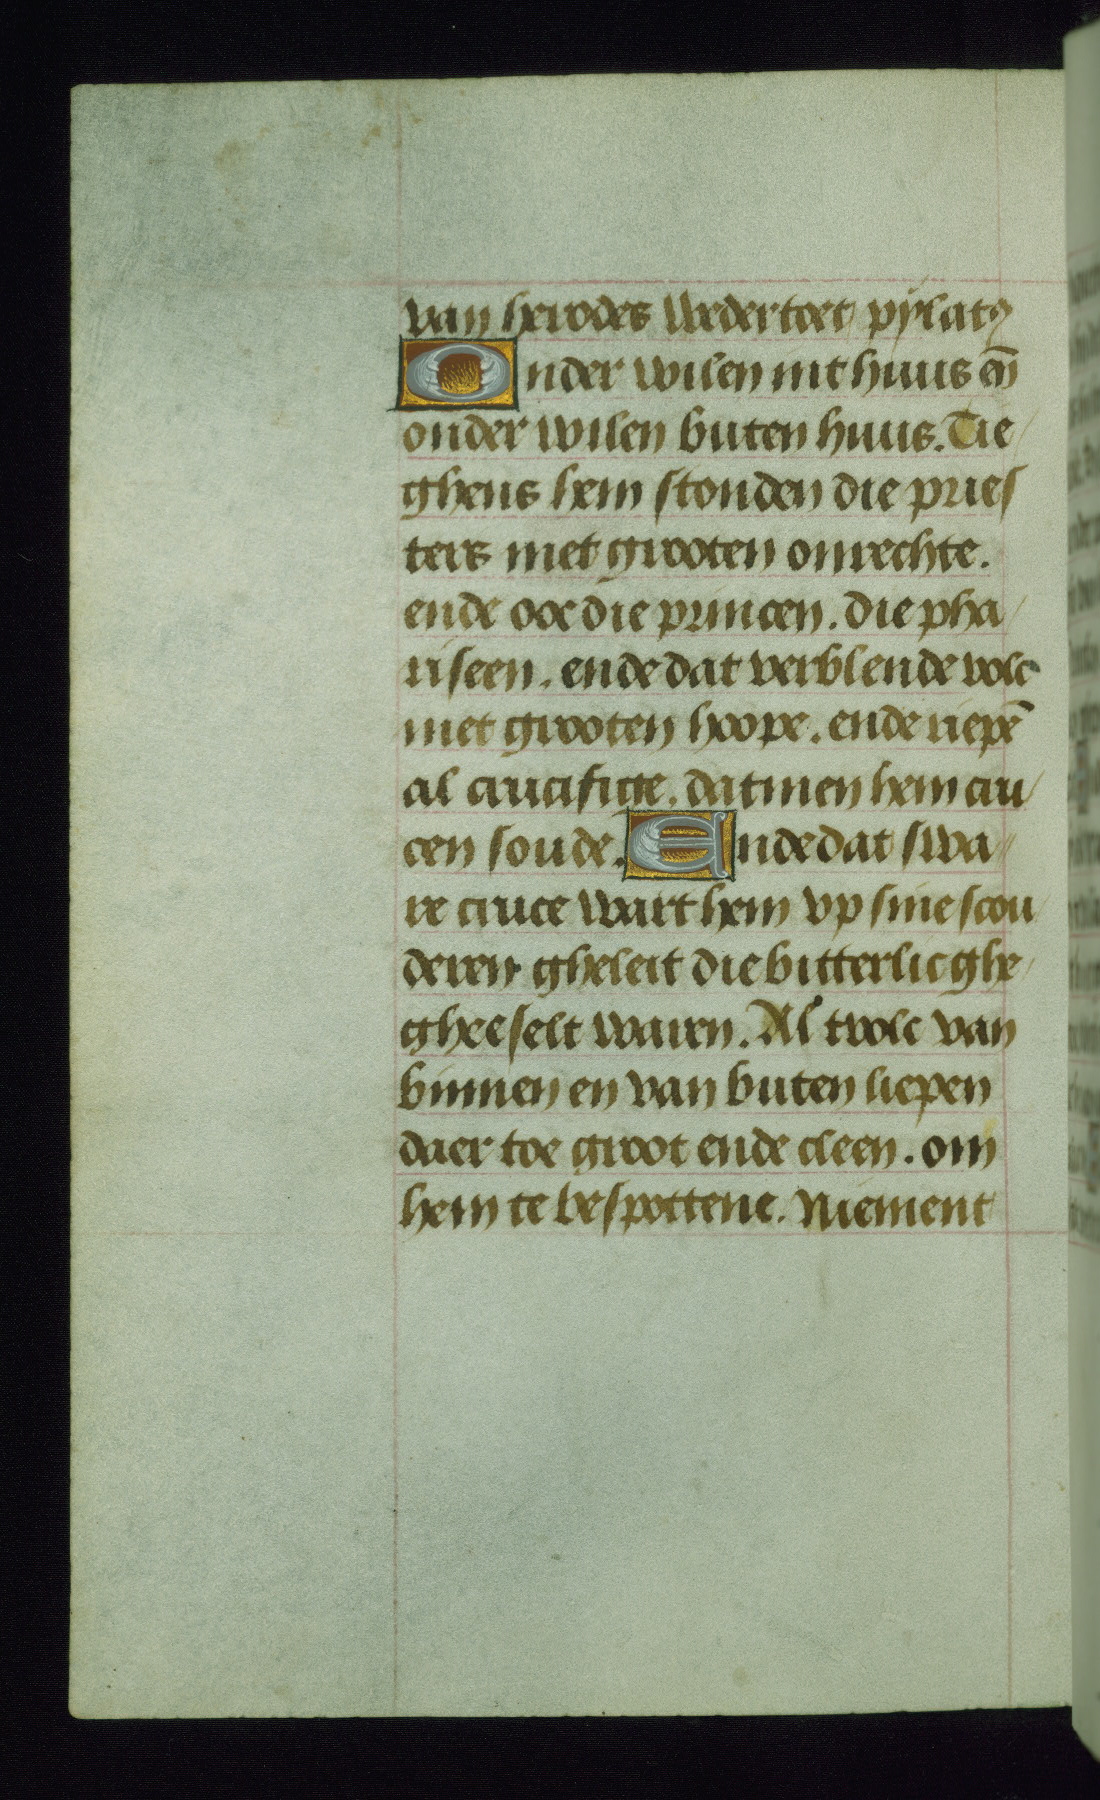 van herodes weder toet pylatꝰ
Onder wilen int huus eñ
onder wilen buten huus. Tie
ghens hem stonden die pries
ters met grooten onrechte.
ende ooc die princen. die pha
riseen. ende dat verblende volc
met grooten hoope. ende riepē
al crucifige. datmen hem cru
cen soude. Ende dat swa
re cruce wart hem vp sine scou
deren gheleit die bitterlic ghe
gheeselt waren. Al tvolc van
binnen en van buten liepen
daer toe groot ende cleen. om
hem te bespottene. Niement